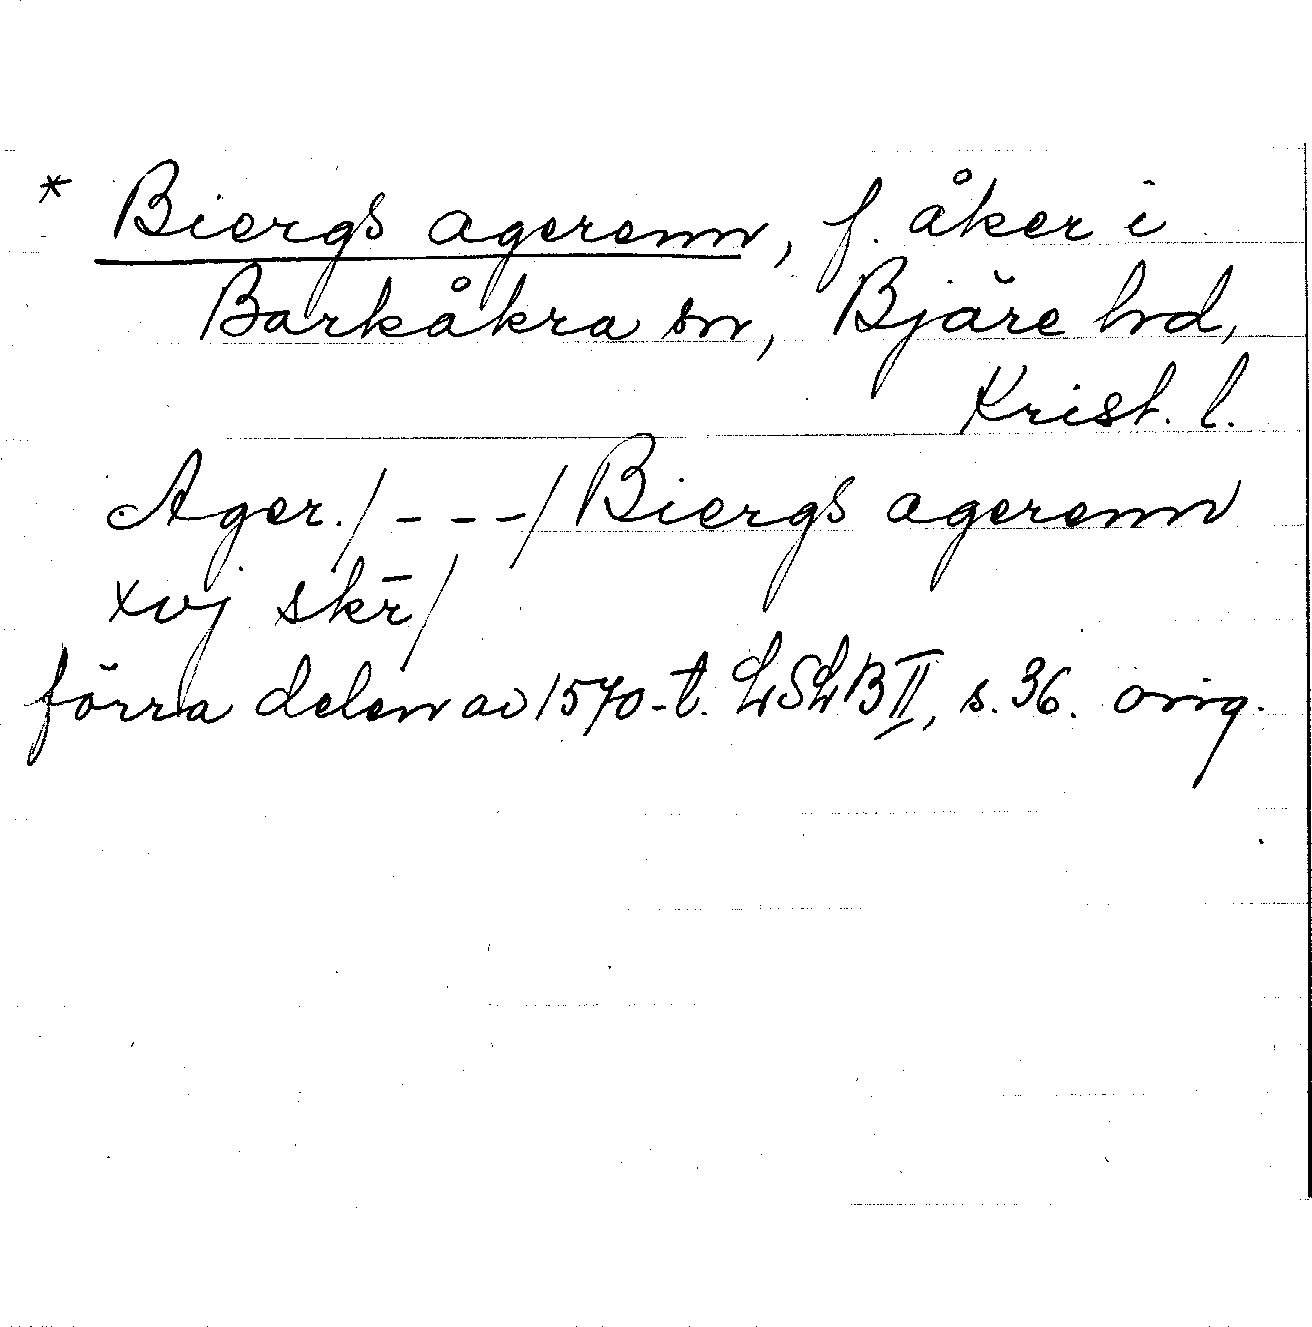 * Biergs agerenn, f. åker i
Barkåkra sn, Bjäre hd,
Krist. l.
Ager./ - - -/ Biergs agerenn
xvj skr̄/
förra delen av 1570-t. LSLB II, s. 36. orig.